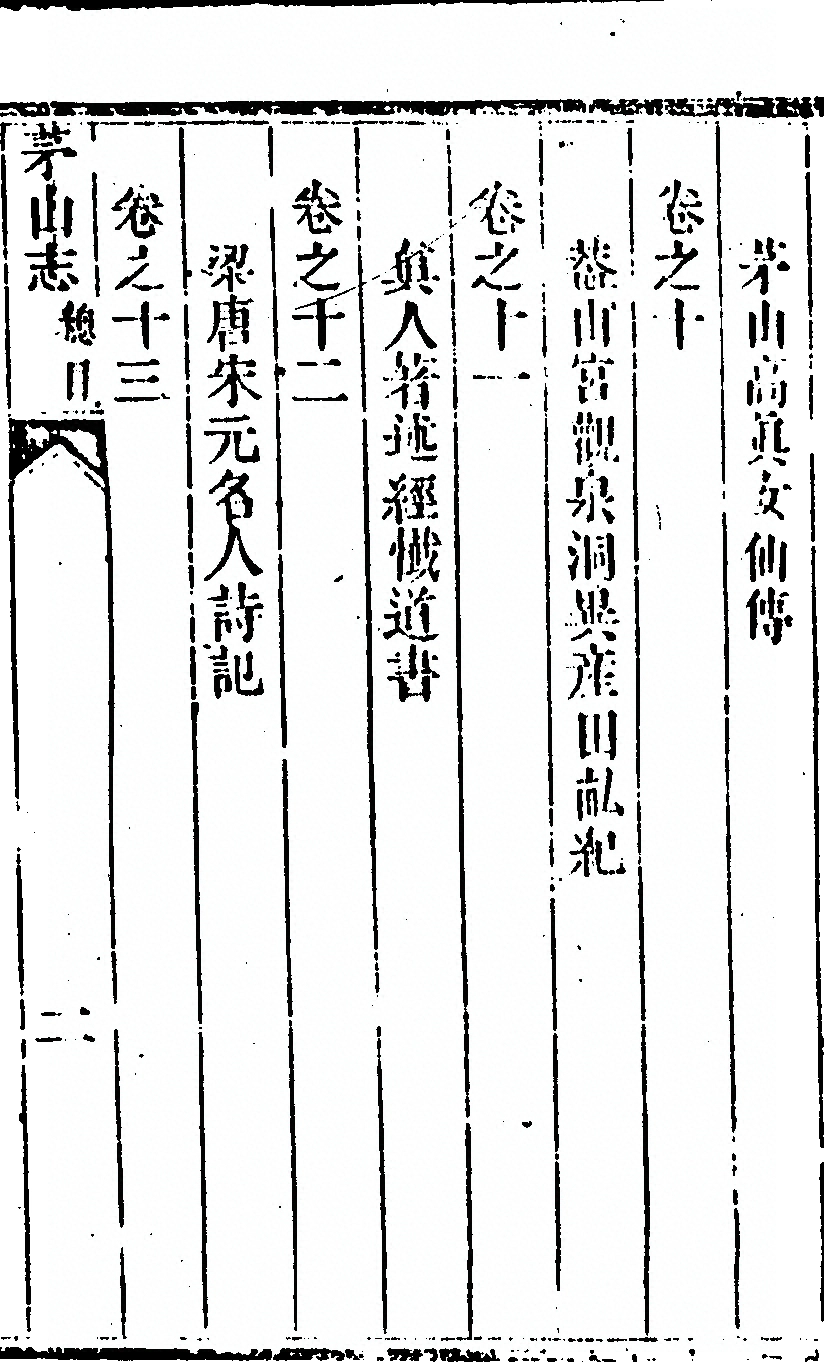 茅山高眞女仙傳
卷之十
茅山宮觀泉洞異產田畝祀
卷之十一
眞人著述經懺道書
卷之十二
梁唐宋元名人詩記
卷之十三
茅山志 總目 二